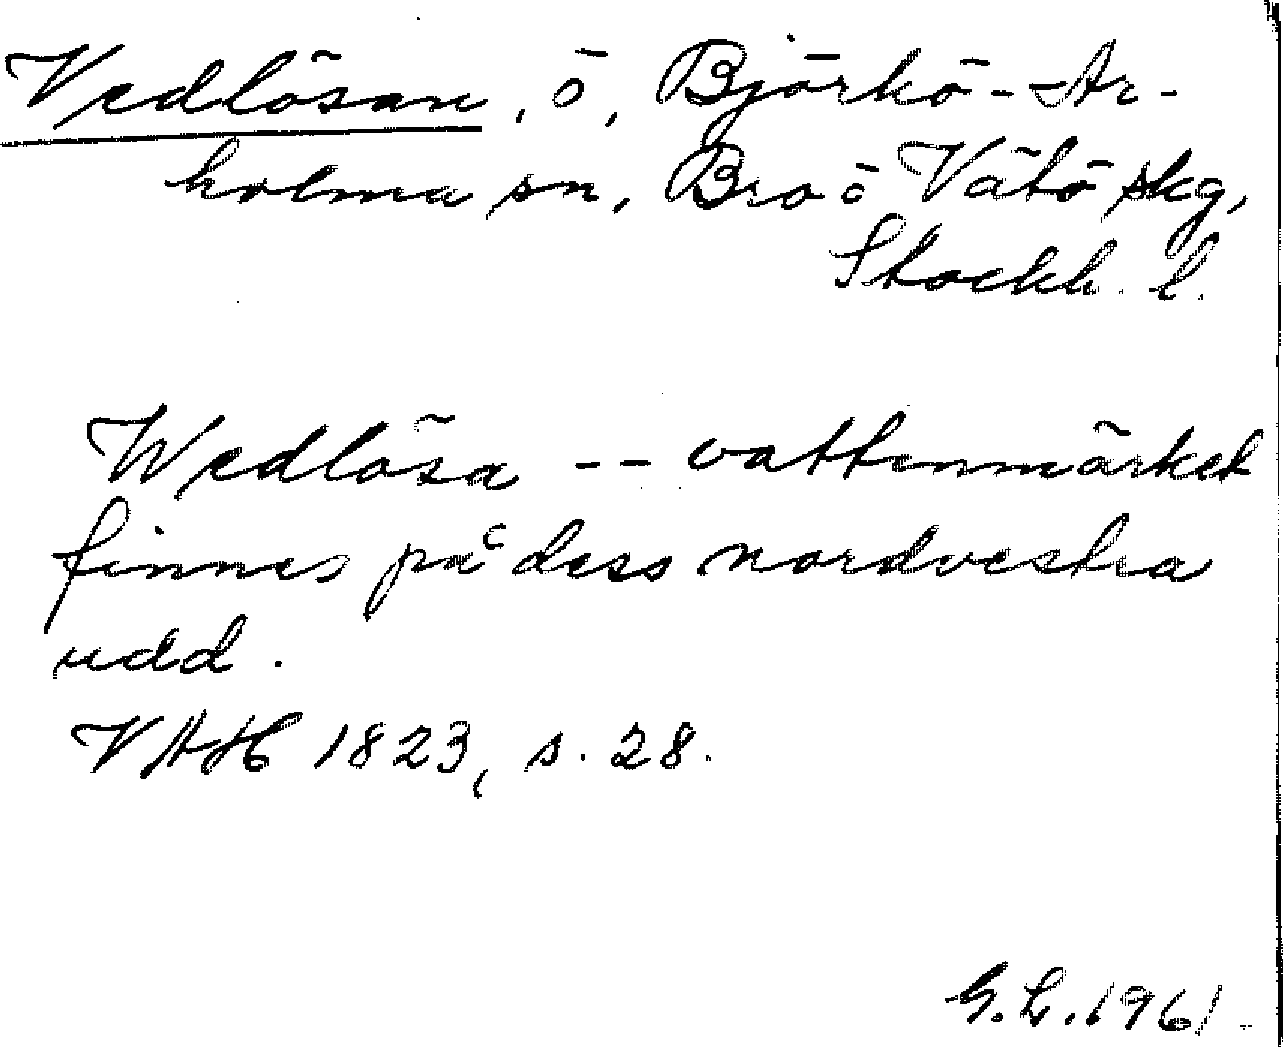 Vedlösan, ö, Björkö-Ar-
holma sn, Bro o Vätö skg,
Stockh. l.
Wedlösa -- vattenmärket
finnes på dess nordvestra
udd.
VAH 1823, s. 28.
G.L. 1961